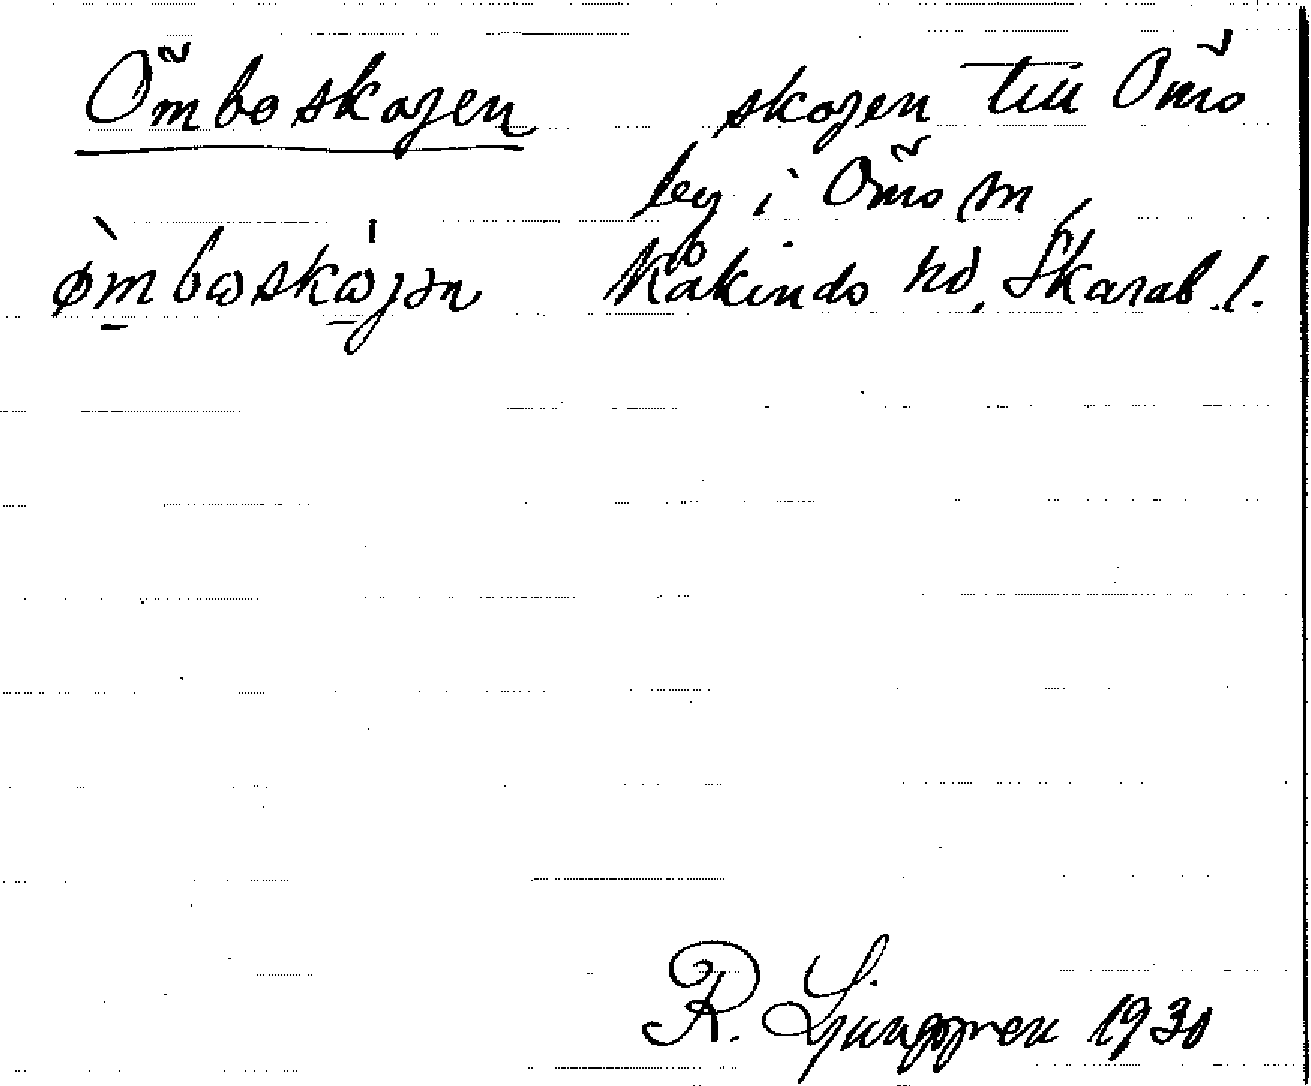 Ömboskogen skogen till Ömo
by i Ömo sn
ø̀m̲bɷskɷ̲̍jən Kåkinds hd, Skarab. l.
R. Ljunggren 1930